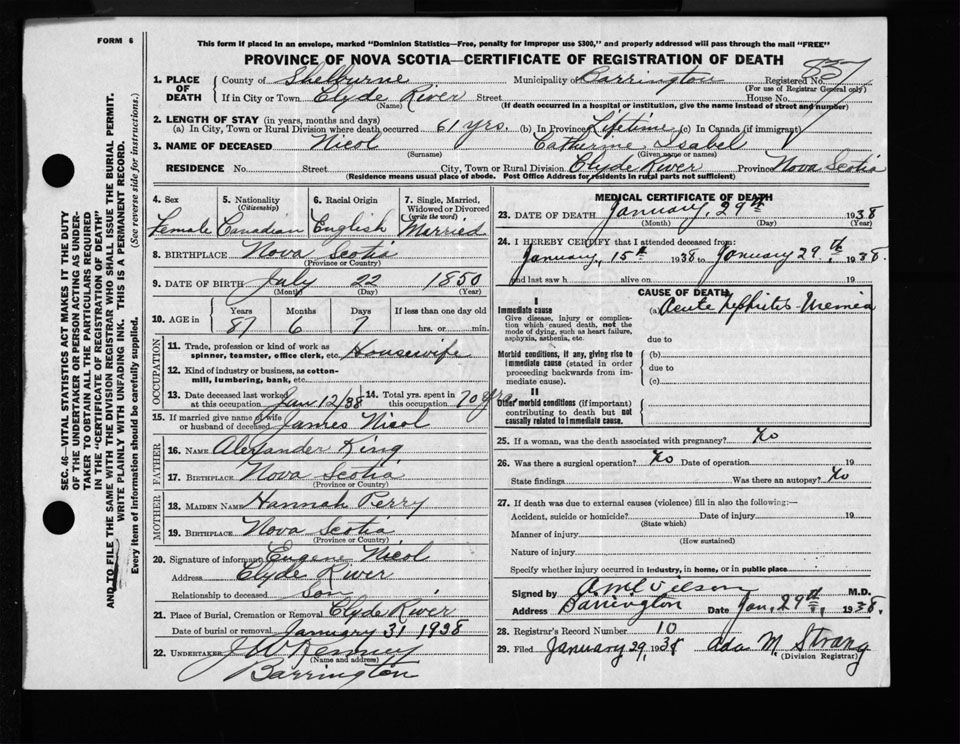 FORM 6
This form if placed in an envelope, marked "Dominion Statistics—Free, penalty for improper use $300," and properly addressed will pass through the mail "FREE"
PROVINCE OF NOVA SCOTIA—CERTIFICATE OF REGISTRATION OF DEATH
SEC. 46—VITAL STATISTICS ACT MAKES IT THE DUTY
OF THE UNDERTAKER OR PERSON ACTING AS UNDER-
TAKER TO OBTAIN ALL THE PARTICULARS REQUIRED
IN THE "CERTIFICATE OF REGISTRATION OF DEATH"
AND TO FILE THE SAME WITH THE DIVISION REGISTRAR WHO SHALL ISSUE THE BURIAL PERMIT.
WRITE PLAINLY WITH UNFADING INK. THIS IS A PERMANENT RECORD.
Every item of information should be carefully supplied. (See reverse side for instructions.)
1. PLACE OF DEATH
County of Shelburne Municipality of Barrington Registered No. 837
(For use of Registrar General only)
If in City or Town Clyde River Street House No.
(Name) (If death occurred in a hospital or institution, give the name instead of street and number)
2. LENGTH OF STAY (in years, months and days)
(a) In City, Town or Rural Division where death occurred 61 yrs. (b) In Province Lifetime (c) In Canada (if immigrant)
3. NAME OF DECEASED Nicol Catherine Isabel
(Surname) (Given name or names)
RESIDENCE No. Street City, Town or Rural Division Clyde River Province Nova Scotia
(Residence means usual place of abode. Post Office Address for residents in rural parts not sufficient)
4. Sex
Female
5. Nationality
(Citizenship)
Canadian
6. Racial Origin
English
7. Single, Married,
Widowed or Divorced
(write the word)
Married
8. BIRTHPLACE Nova Scotia
(Province or Country)
9. DATE OF BIRTH July 22 1850
(Month) (Day) (Year)
10. AGE in Years Months Days If less than one day old
87 6 7 hrs. or min.
OCCUPATION
11. Trade, profession or kind of work as
spinner, teamster, office clerk, etc. Housewife
12. Kind of industry or business, as cotton-
mill, lumbering, bank, etc.
13. Date deceased last worked
at this occupation Jan. 12/38
14. Total yrs. spent in
this occupation 70 yrs.
15. If married give name of wife
or husband of deceased James Nicol
FATHER
16. NAME Alexander King
17. BIRTHPLACE Nova Scotia
(Province or Country)
MOTHER
18. MAIDEN NAME Hannah Perry
19. BIRTHPLACE Nova Scotia
(Province or Country)
20. Signature of informant Eugene Nicol
Address Clyde River
Relationship to deceased Son
21. Place of Burial, Cremation or Removal Clyde River
Date of burial or removal January 31 1938
22. UNDERTAKER J W Kenney
(Name and address)
Barrington
MEDICAL CERTIFICATE OF DEATH
23. DATE OF DEATH January, 29th 1938
(Month) (Day) (Year)
24. I HEREBY CERTIFY that I attended deceased from:
January, 15th 1938 to January 29th, 1938.
and last saw h alive on 19
CAUSE OF DEATH
I
Immediate cause
Give disease, injury or complica-
tion which caused death, not the
mode of dying, such as heart failure,
asphyxia, asthenia, etc.
(a) Acute Nephritis
due to
Morbid conditions, if any, giving rise to
immediate cause (stated in order
proceeding backwards from im-
mediate cause).
(b)
due to
(c)
II
Other morbid conditions (if important)
contributing to death but not
causally related to immediate cause.
25. If a woman, was the death associated with pregnancy? No
26. Was there a surgical operation? No Date of operation 19
State findings Was there an autopsy? No
27. If death was due to external causes (violence) fill in also the following:—
Accident, suicide or homicide? Date of injury 19
(State which)
Manner of injury
(How sustained)
Nature of injury
Specify whether injury occurred in industry, in home, or in public place
Signed by M.D.
Address Barrington Date Jan, 29th, 1938.
28. Registrar's Record Number 10
29. Filed January 29, 1938 Ada M. Strang
(Division Registrar)